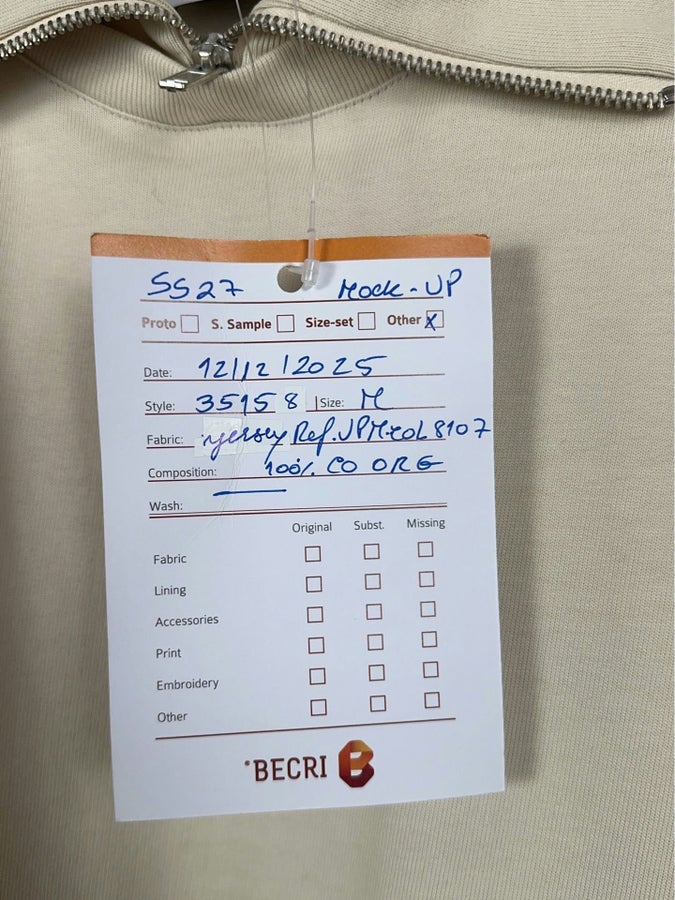 SS27 Mock-UP
Proto S. Sample Size-set Other X
Date: 12/12/2025
Style: 35158 Size: M
Fabric: jersey Ref.
Composition: 100% CO ORG
Wash:
Original Subst. Missing
Fabric
Lining
Accessories
Print
Embroidery
Other
BECRI